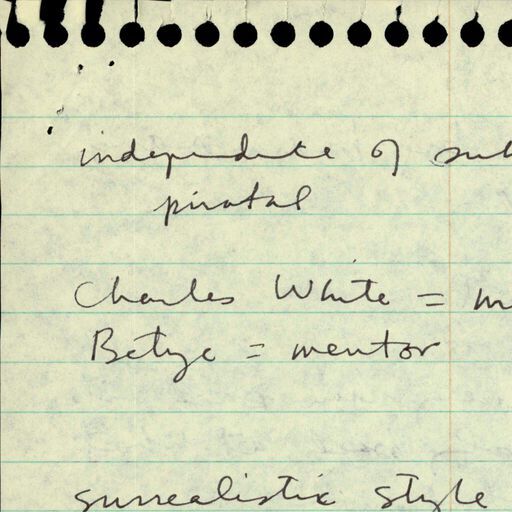 independence of sub
pivotal
Charles White = m
Betye = mentor
surrealistic style